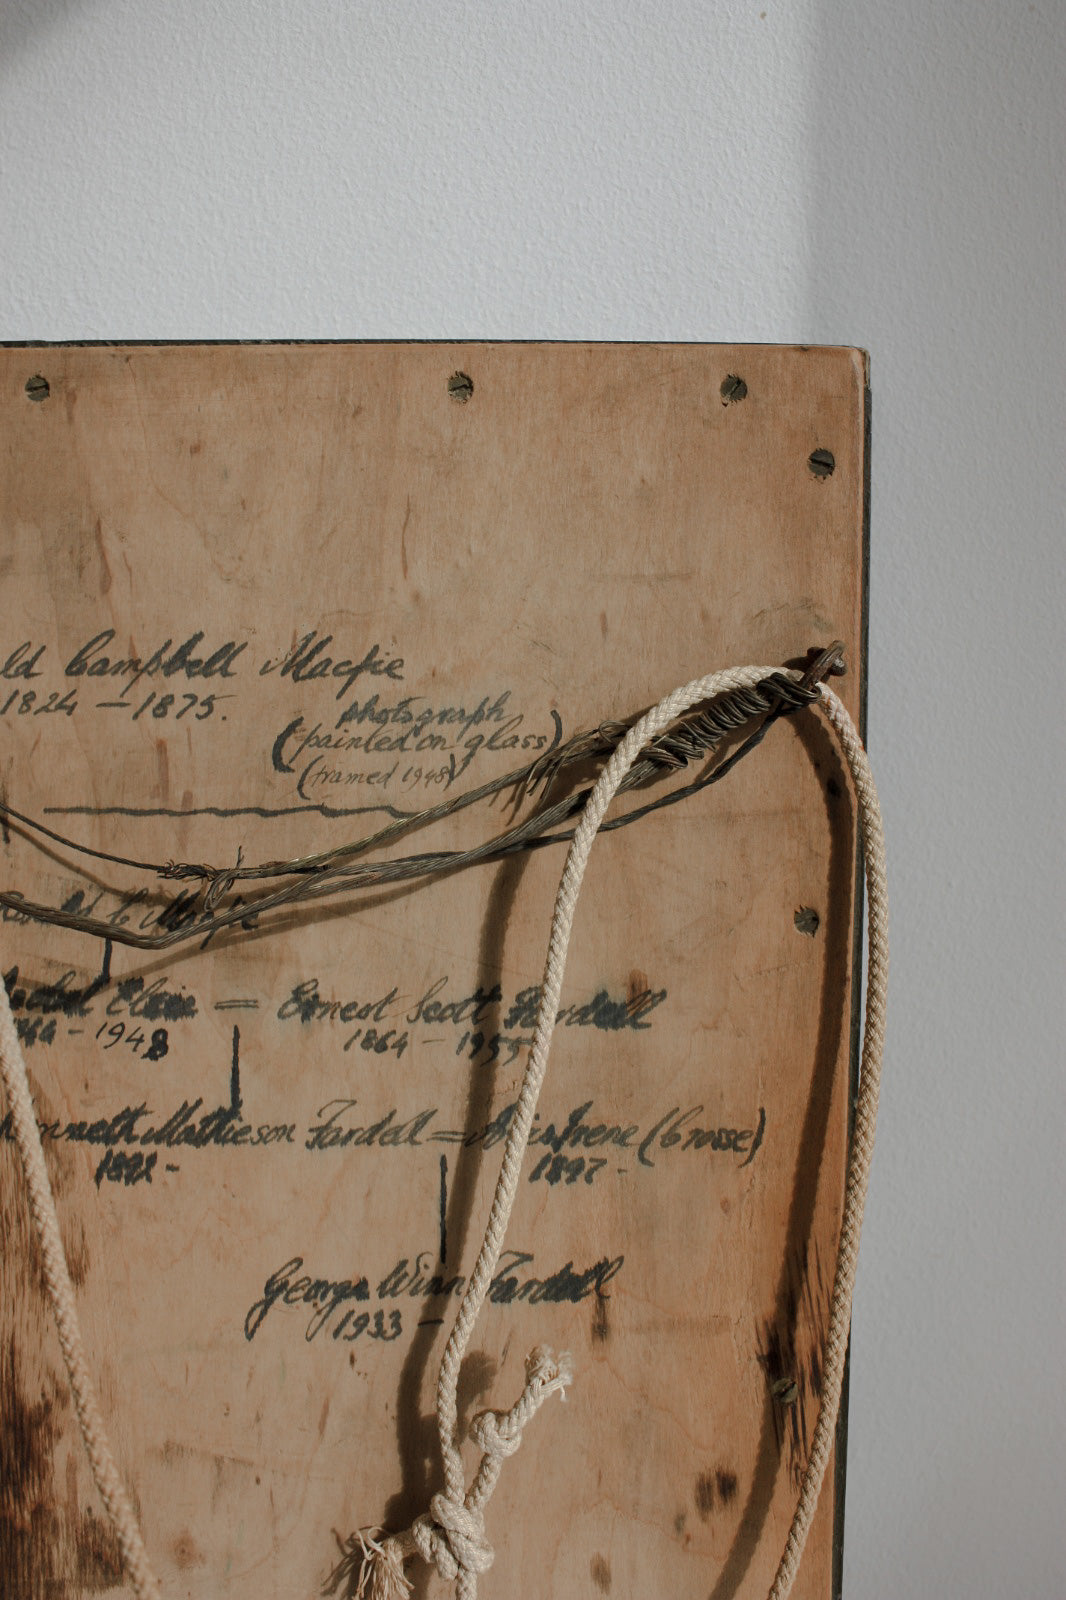 ld Campbell Macfie
1824 – 1875.
photograph
(painted on glass)
(framed 1948)
Macfie
Elsie = Ernest Scott Fardell
– 1948 1864 – 1955
Mathieson Fardell = Irene (Crosse)
1892 - 1897 -
George Winn Fardell
1933 –